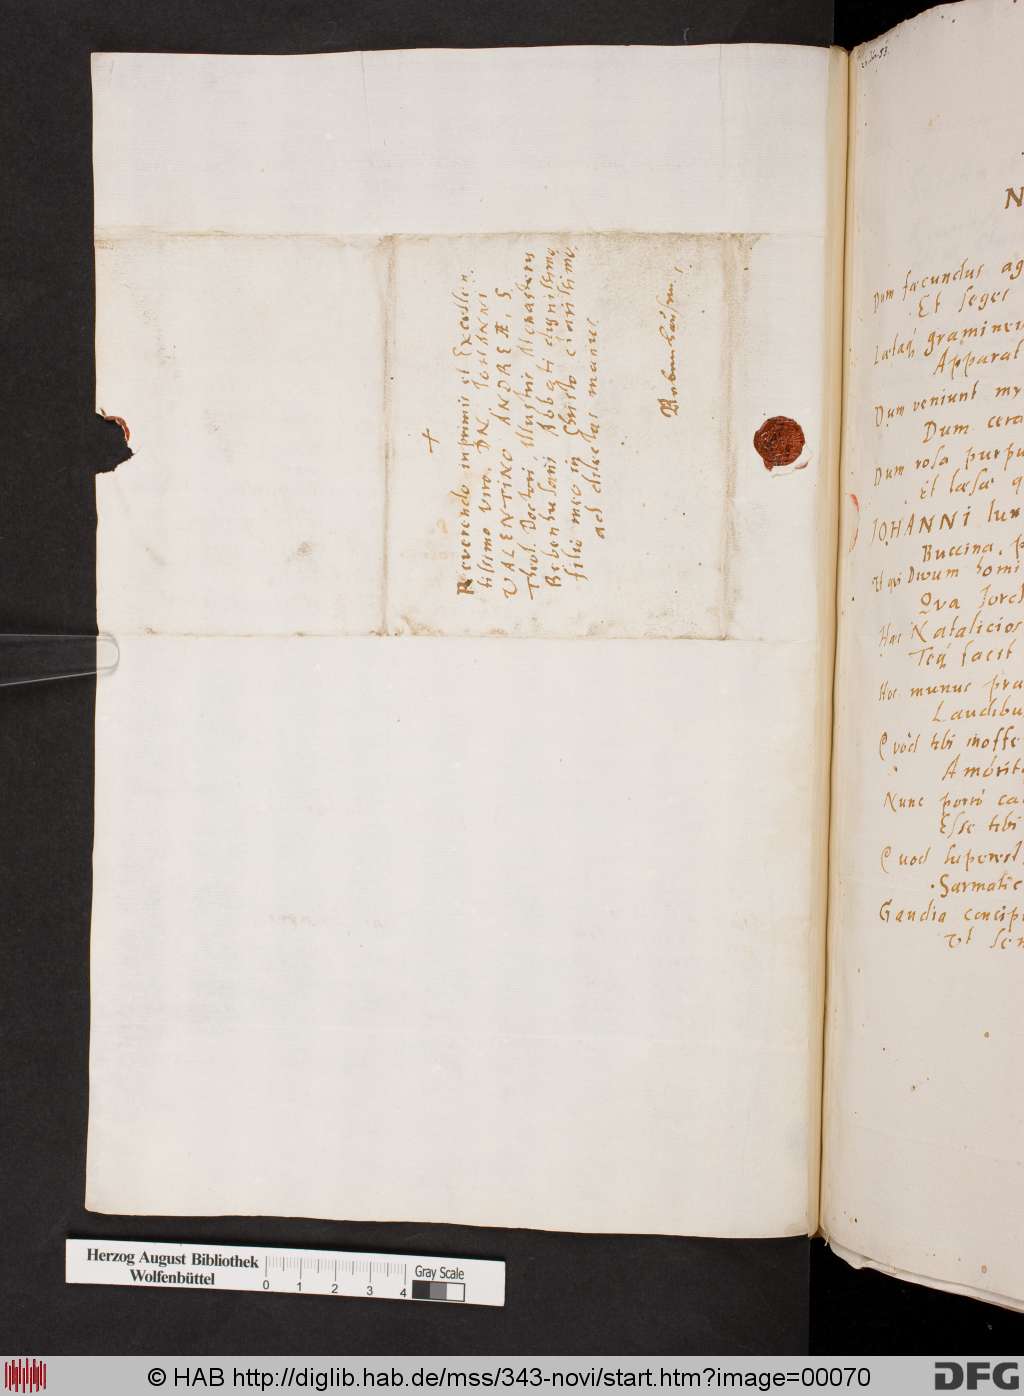 +
Reverendo inprimis et Excellen-
tissimo viro. DN. JOHANNI
VALENTINO ANDREÆ, S.
Theol. Doctori, illustris Monasterii
Bebenhusani Abbati dignissimo,
filio meo in Christo charissimo,
ad dilectas manus
Bebenhausen.
N
Dum fæcundus ag
Et seges
Lætaq́ gramineu
Apparat
Dum veniunt my
Dum cera
Dum rosa purpu
et læsæ q
JOHANNI lux
Buccina, p
Divum homi
Qva Jorch
Hæc Natalicios
Teq́ facit
Hoc munus pra
Laudibu
Qvòd tibi inoffe
Nunc porrò ca
Esse tibi
Quod superest,
Sarmatic
Gaudia concipi
Vt sen
Herzog August Bibliothek
Wolfenbüttel
0 1 2 3 4
Gray Scale
© HAB http://diglib.hab.de/mss/343-novi/start.htm?image=00070
DFG